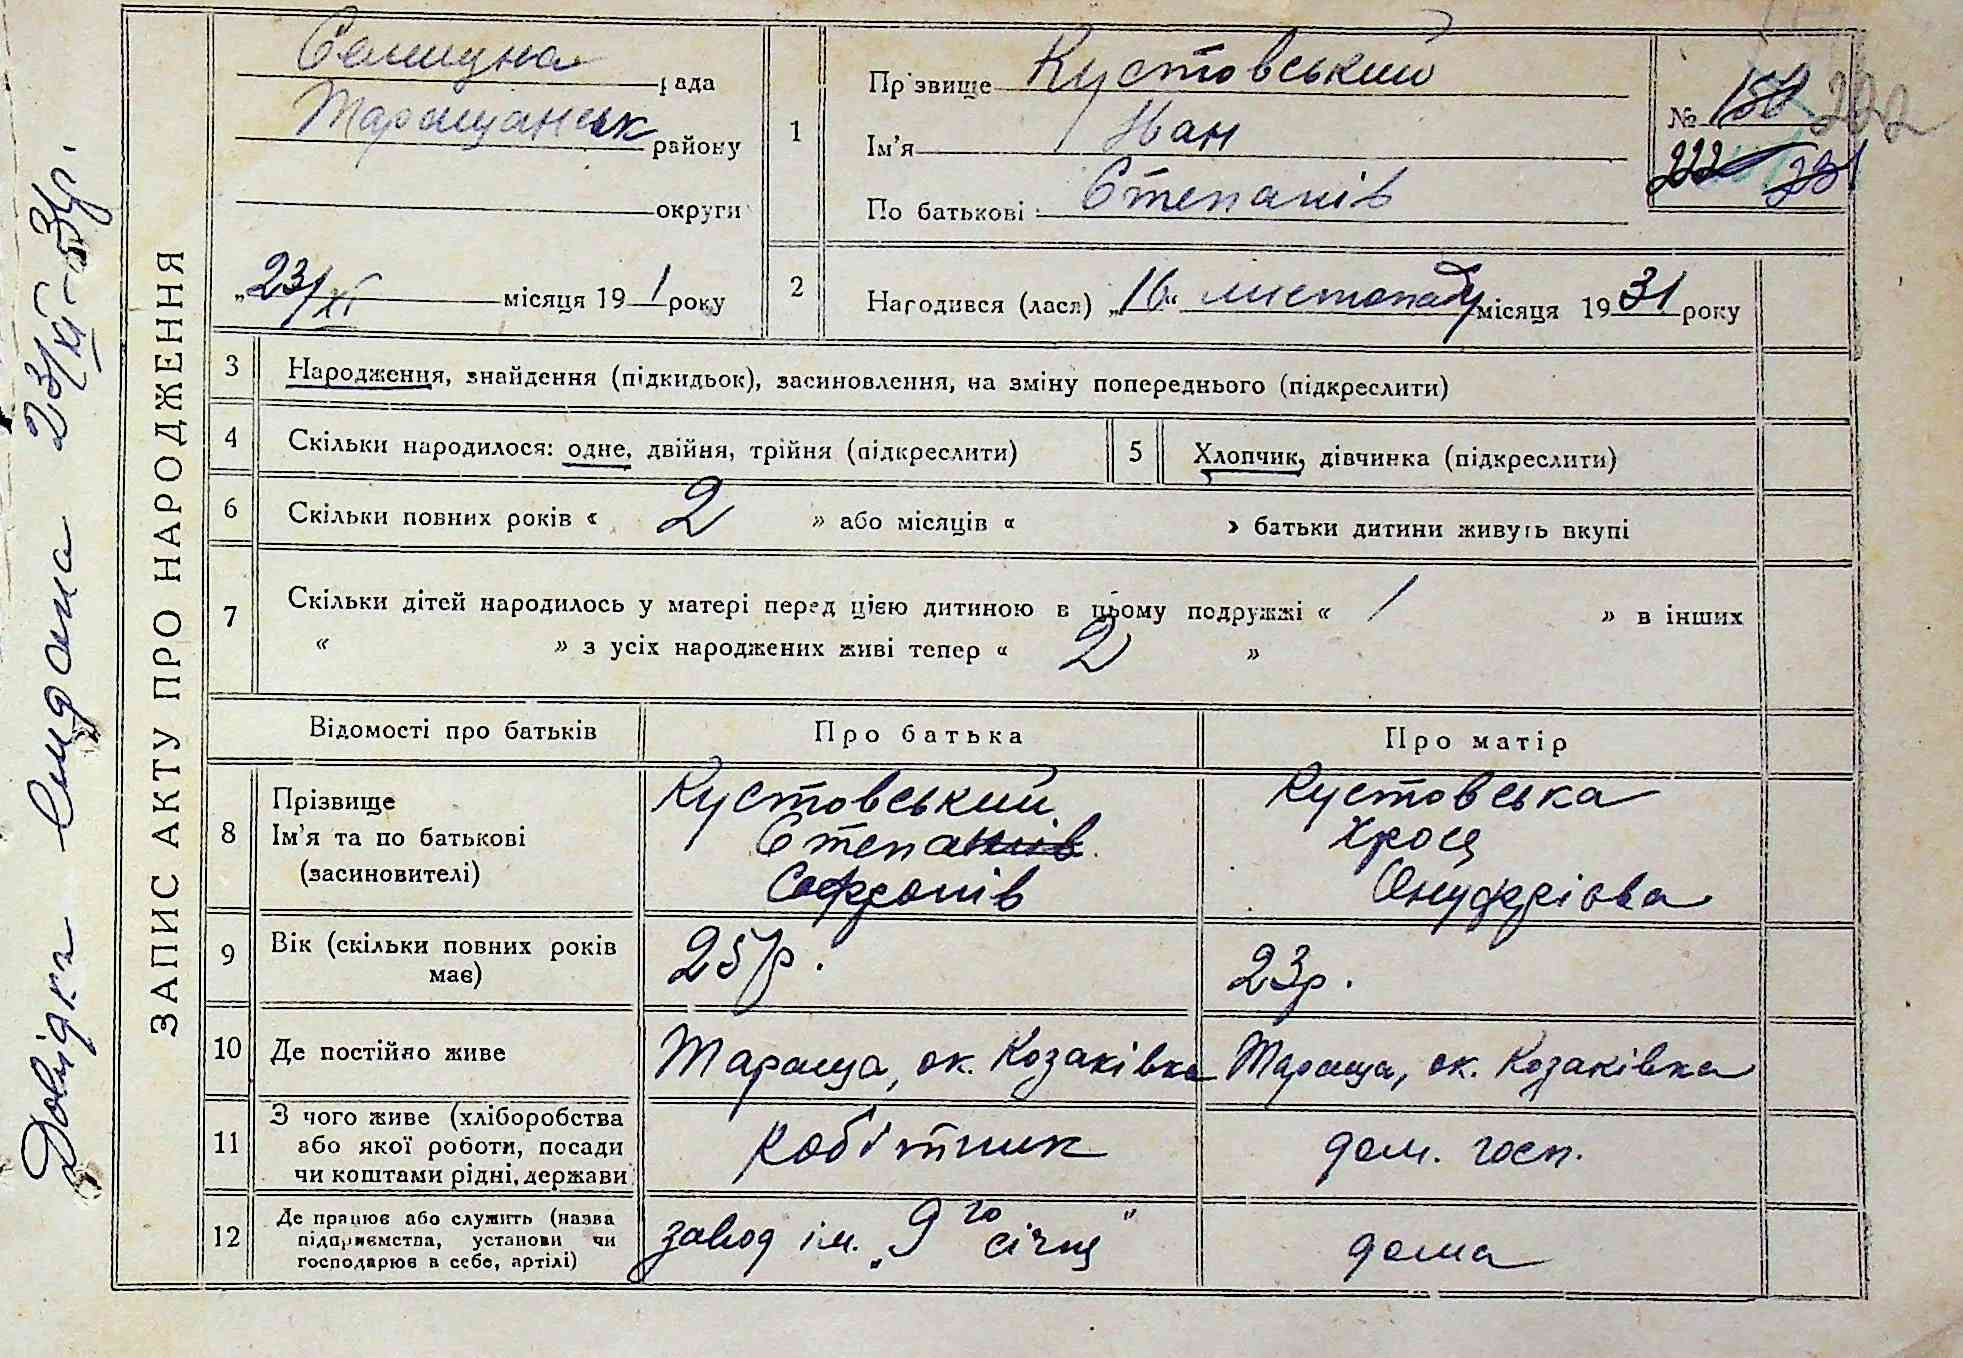 ЗАПИС АКТУ ПРО НАРОДЖЕННЯ
Довідка видана 23/XI-31р.
Селищна рада
Таращанськ району
округи
„23/XI місяця 19 1 року
1
Прізвище Кустовський
Ім'я Іван
По батькові Степанів
№ 150 222
222 231
2
Народився (лася) „16" листопаду місяця 19 31 року
3 Народження, знайдення (підкидьок), засиновлення, на зміну попереднього (підкреслити)
4 Скільки народилося: одне, двійня, трійня (підкреслити)
5 Хлопчик, дівчинка (підкреслити)
6 Скільки повних років « 2 » або місяців « » батьки дитини живуть вкупі
7 Скільки дітей народилось у матері перед цією дитиною в цьому подружжі « 1 » в інших
« » з усіх народжених живі тепер « 2 »
Відомості про батьків Про батька Про матір
8 Прізвище Кустовський Кустовська
Ім'я та по батькові Степанів Хрося
(засиновителі) Софронів Онуфріова
9 Вік (скільки повних років має) 25р. 23р.
10 Де постійно живе Тараща, ок. Козаківка Тараща, ок. Козаківка
11 З чого живе (хліборобства
або якої роботи, посади робітник дом. госп.
чи коштами рідні, держави
12 Де працює або служить (назва
підприємства, установи чи завод ім. „9го січня" дома
господарює в себе, артілі)